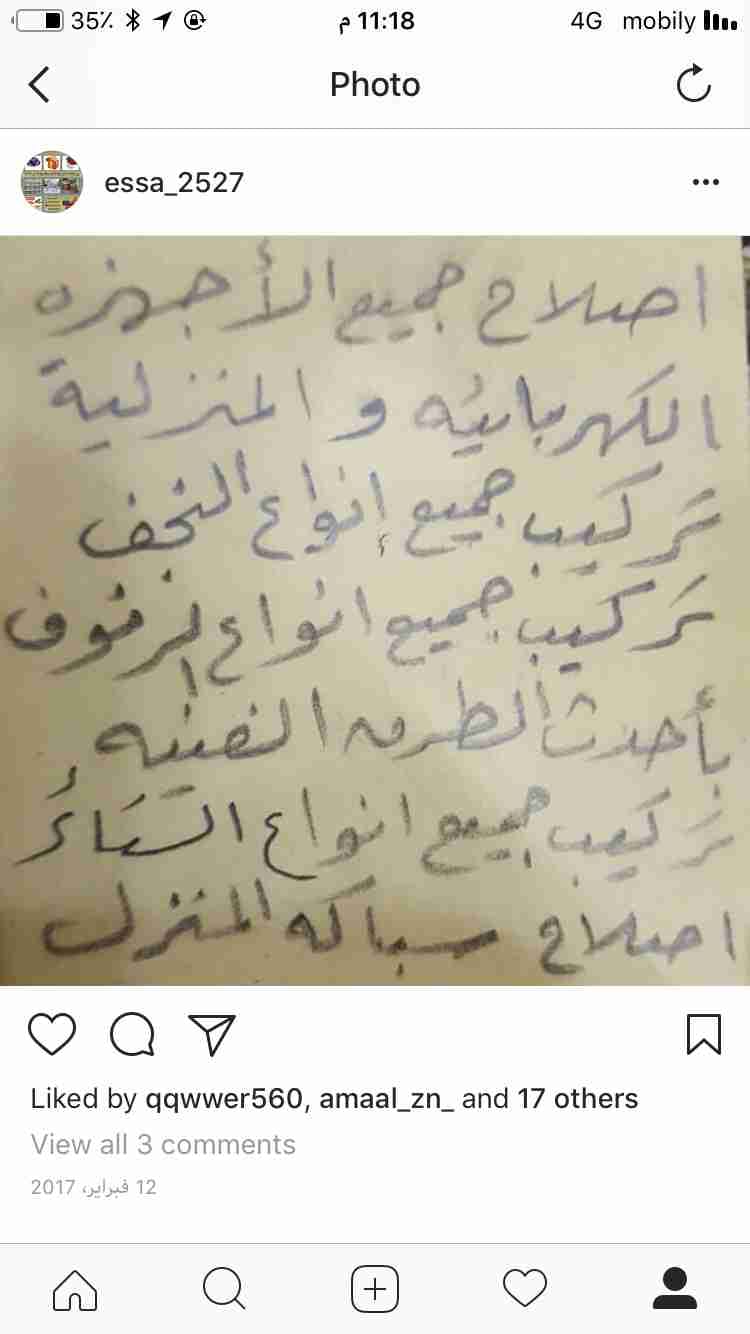 35٪ 11:18 م 4G mobily
Photo
essa_2527
اصلاح جميع الأجهزه
الكهربائيه و المنزلية
تركيب جميع انواع النجف
تركيب جميع انواع الرفوف
بأحدث الطرق الفنيه
تركيب جميع انواع الستائر
اصلاح سباكه المنزل
Liked by qqwwer560, amaal_zn_ and 17 others
View all 3 comments
12 فبراير، 2017